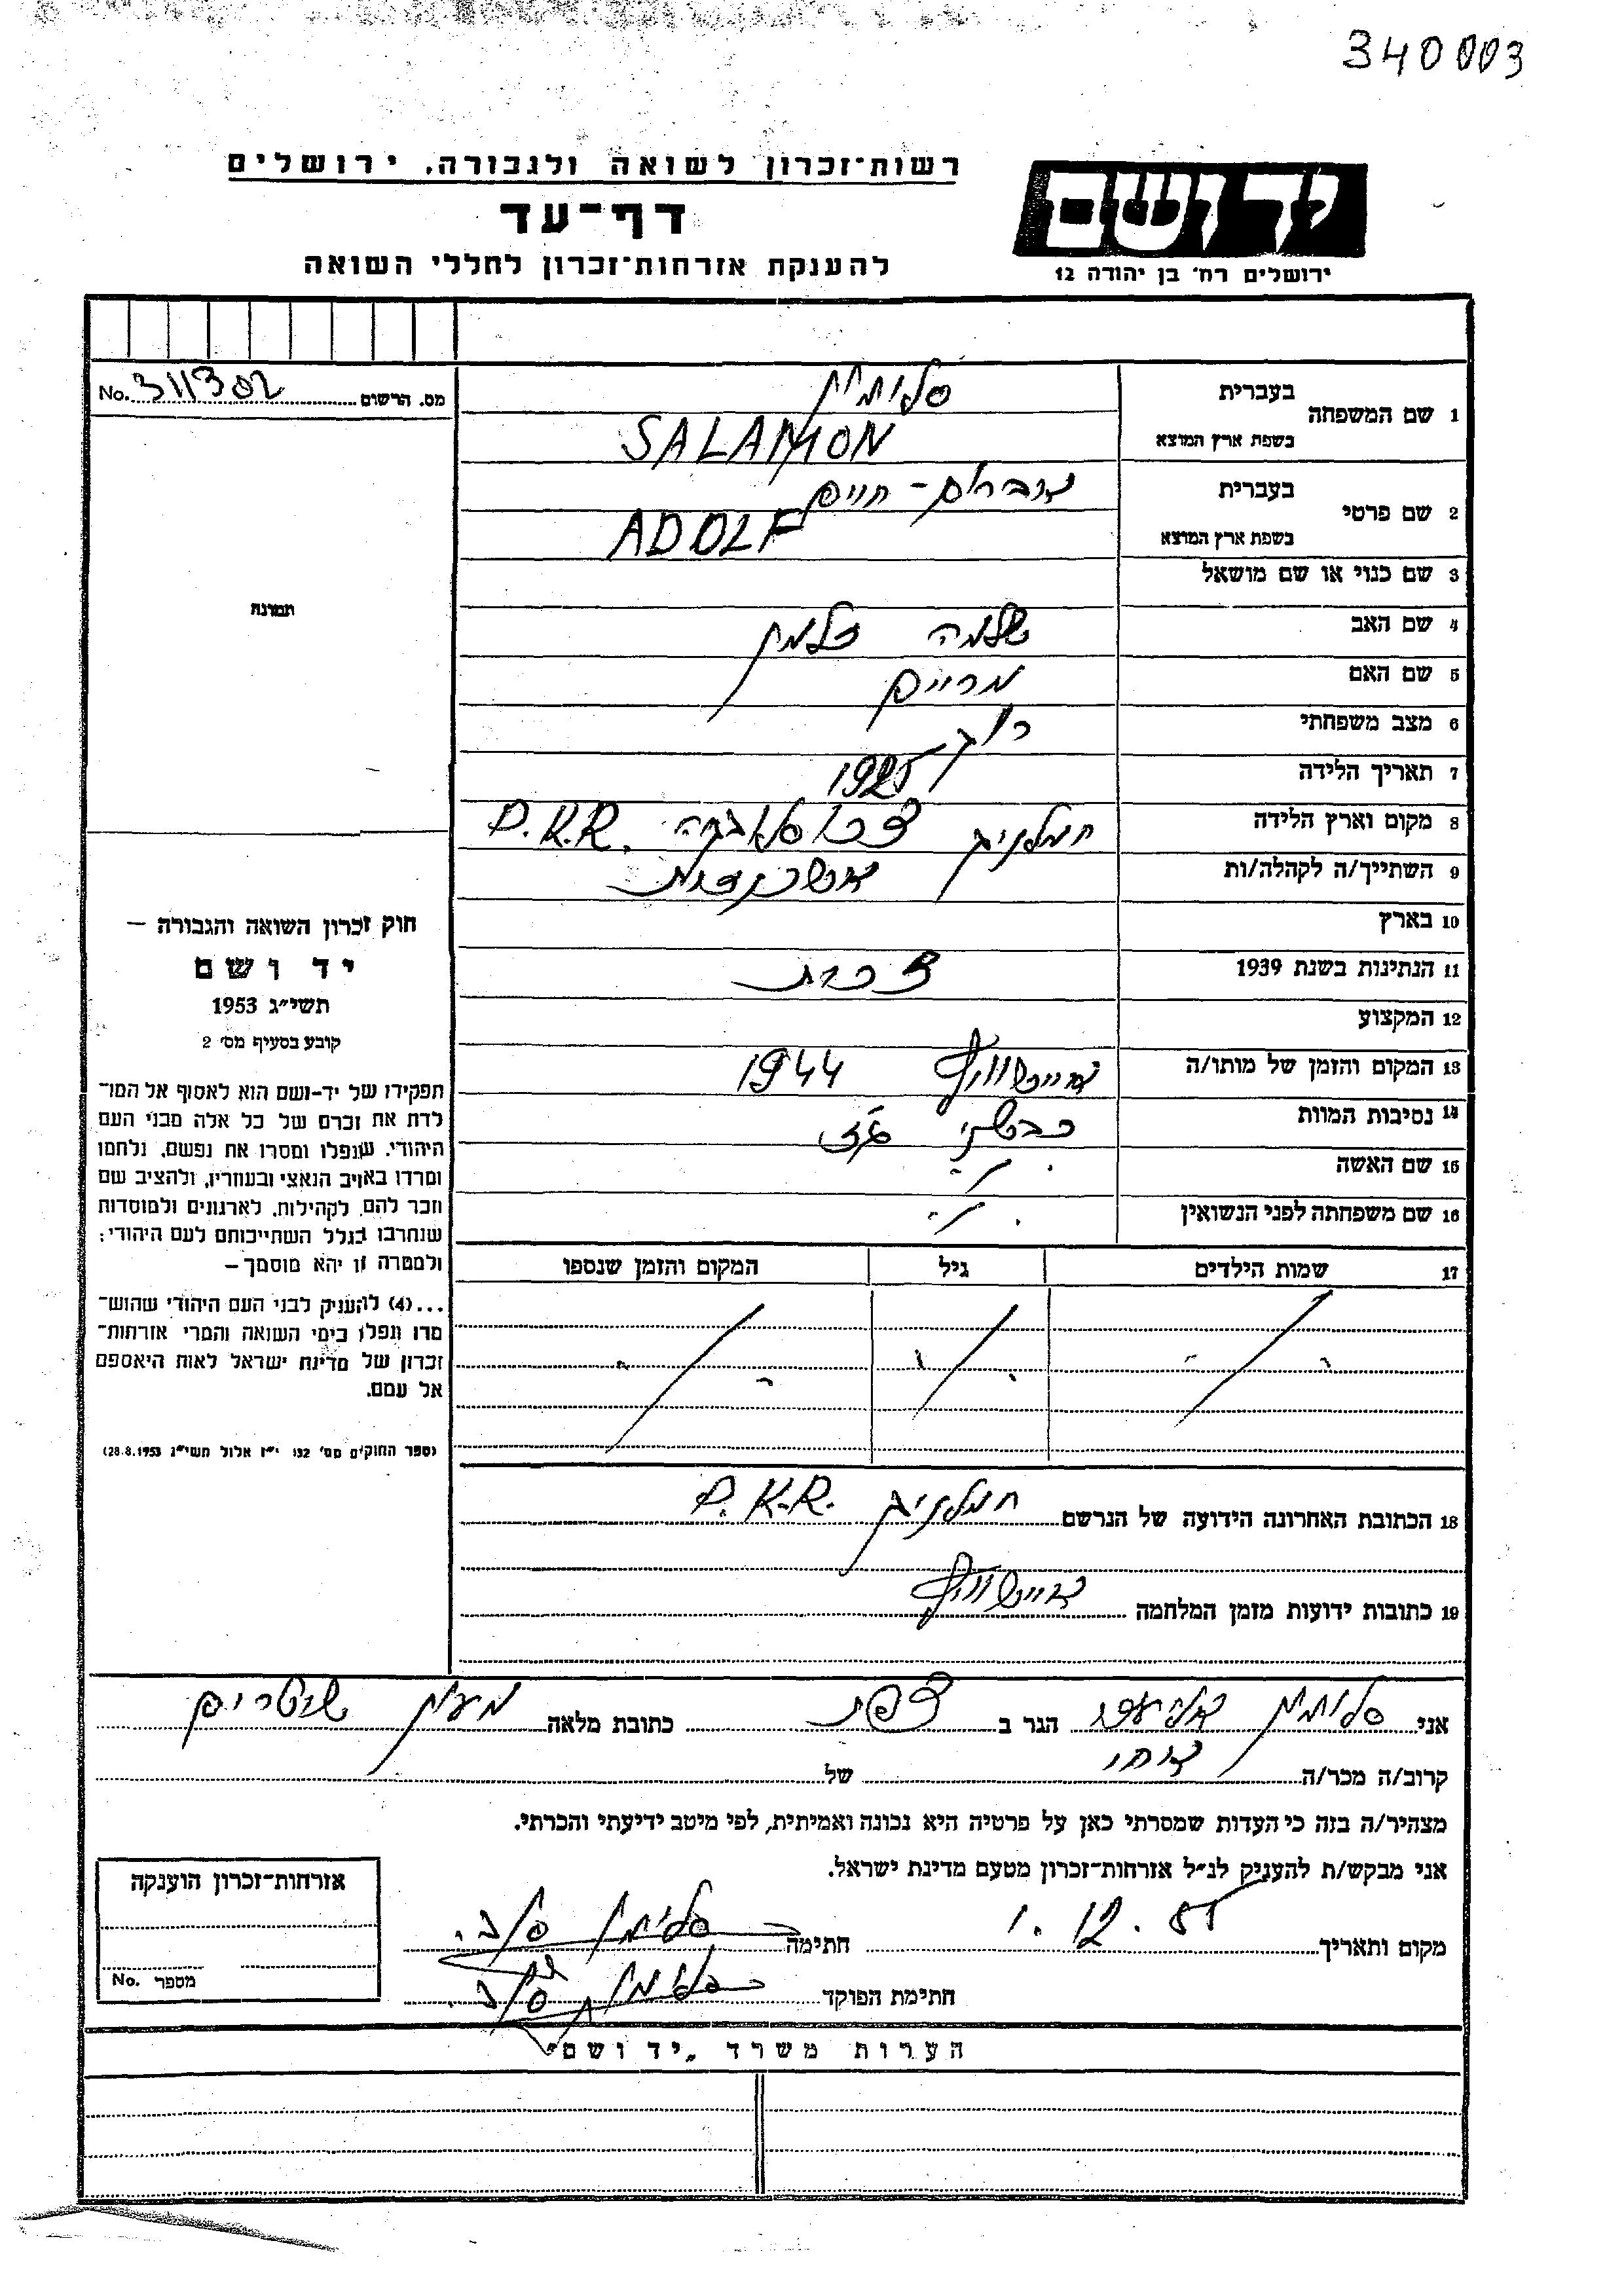 340003
רשות־זכרון לשואה ולגבורה, ירושלים
דף־עד
להענקת אזרחות־זכרון לחללי השואה
יד ושם
ירושלים רח׳ בן יהודה 12
מס. הרשום 311302 No.
תמונה
חוק זכרון השואה והגבורה —
יד ושם
תשי״ג 1953
קובע בסעיף מס׳ 2
תפקידו של יד-ושם הוא לאסוף אל המו־
לדת את זכרם של כל אלה מבני העם
היהודי, שנפלו ומסרו את נפשם, נלחמו
ומרדו באויב הנאצי ובעוזריו, ולהציב שם
וזכר להם, לקהילות, לארגונים ולמוסדות
שנחרבו בגלל השתייכותם לעם היהודי;
ולמטרה זו יהא מוסמך —
...(4) להעניק לבני העם היהודי שהוש־
מדו ונפלו בימי השואה והמרי אזרחות־
זכרון של מדינת ישראל לאות היאספם
אל עמם.
(ספר החוקים מס׳ 132 י״ז אלול תשי״ג 28.8.1953)
1 שם המשפחה בעברית סלומון
בשפת ארץ המוצא SALAMON
2 שם פרטי בעברית אברהם - חיים
בשפת ארץ המוצא ADOLF
3 שם כנוי או שם מושאל
4 שם האב שלמה זלמן
5 שם האם מריים
6 מצב משפחתי רווק
7 תאריך הלידה 1925
8 מקום וארץ הלידה P.K.R.
9 השתייך/ה לקהלה/ות
10 בארץ
11 הנתינות בשנת 1939
12 המקצוע
13 המקום והזמן של מותו/ה אויישוויץ 1944
14 נסיבות המוות כבשני גז
15 שם האשה
16 שם משפחתה לפני הנשואין
17 שמות הילדים גיל המקום והזמן שנספו
18 הכתובת האחרונה הידועה של הנרשם P.K.R.
19 כתובות ידועות מזמן המלחמה אויישוויץ
אני סלומון הגר ב צפת כתובת מלאה מעון
קרוב/ה מכר/ה אחי של
מצהיר/ה בזה כי העדות שמסרתי כאן על פרטיה היא נכונה ואמיתית, לפי מיטב ידיעתי והכרתי.
אני מבקש/ת להעניק לנ״ל אזרחות־זכרון מטעם מדינת ישראל.
מקום ותאריך 1.12.55 חתימה
חתימת הפוקד
אזרחות־זכרון הוענקה
מספר No.
הערות משרד „יד ושם״